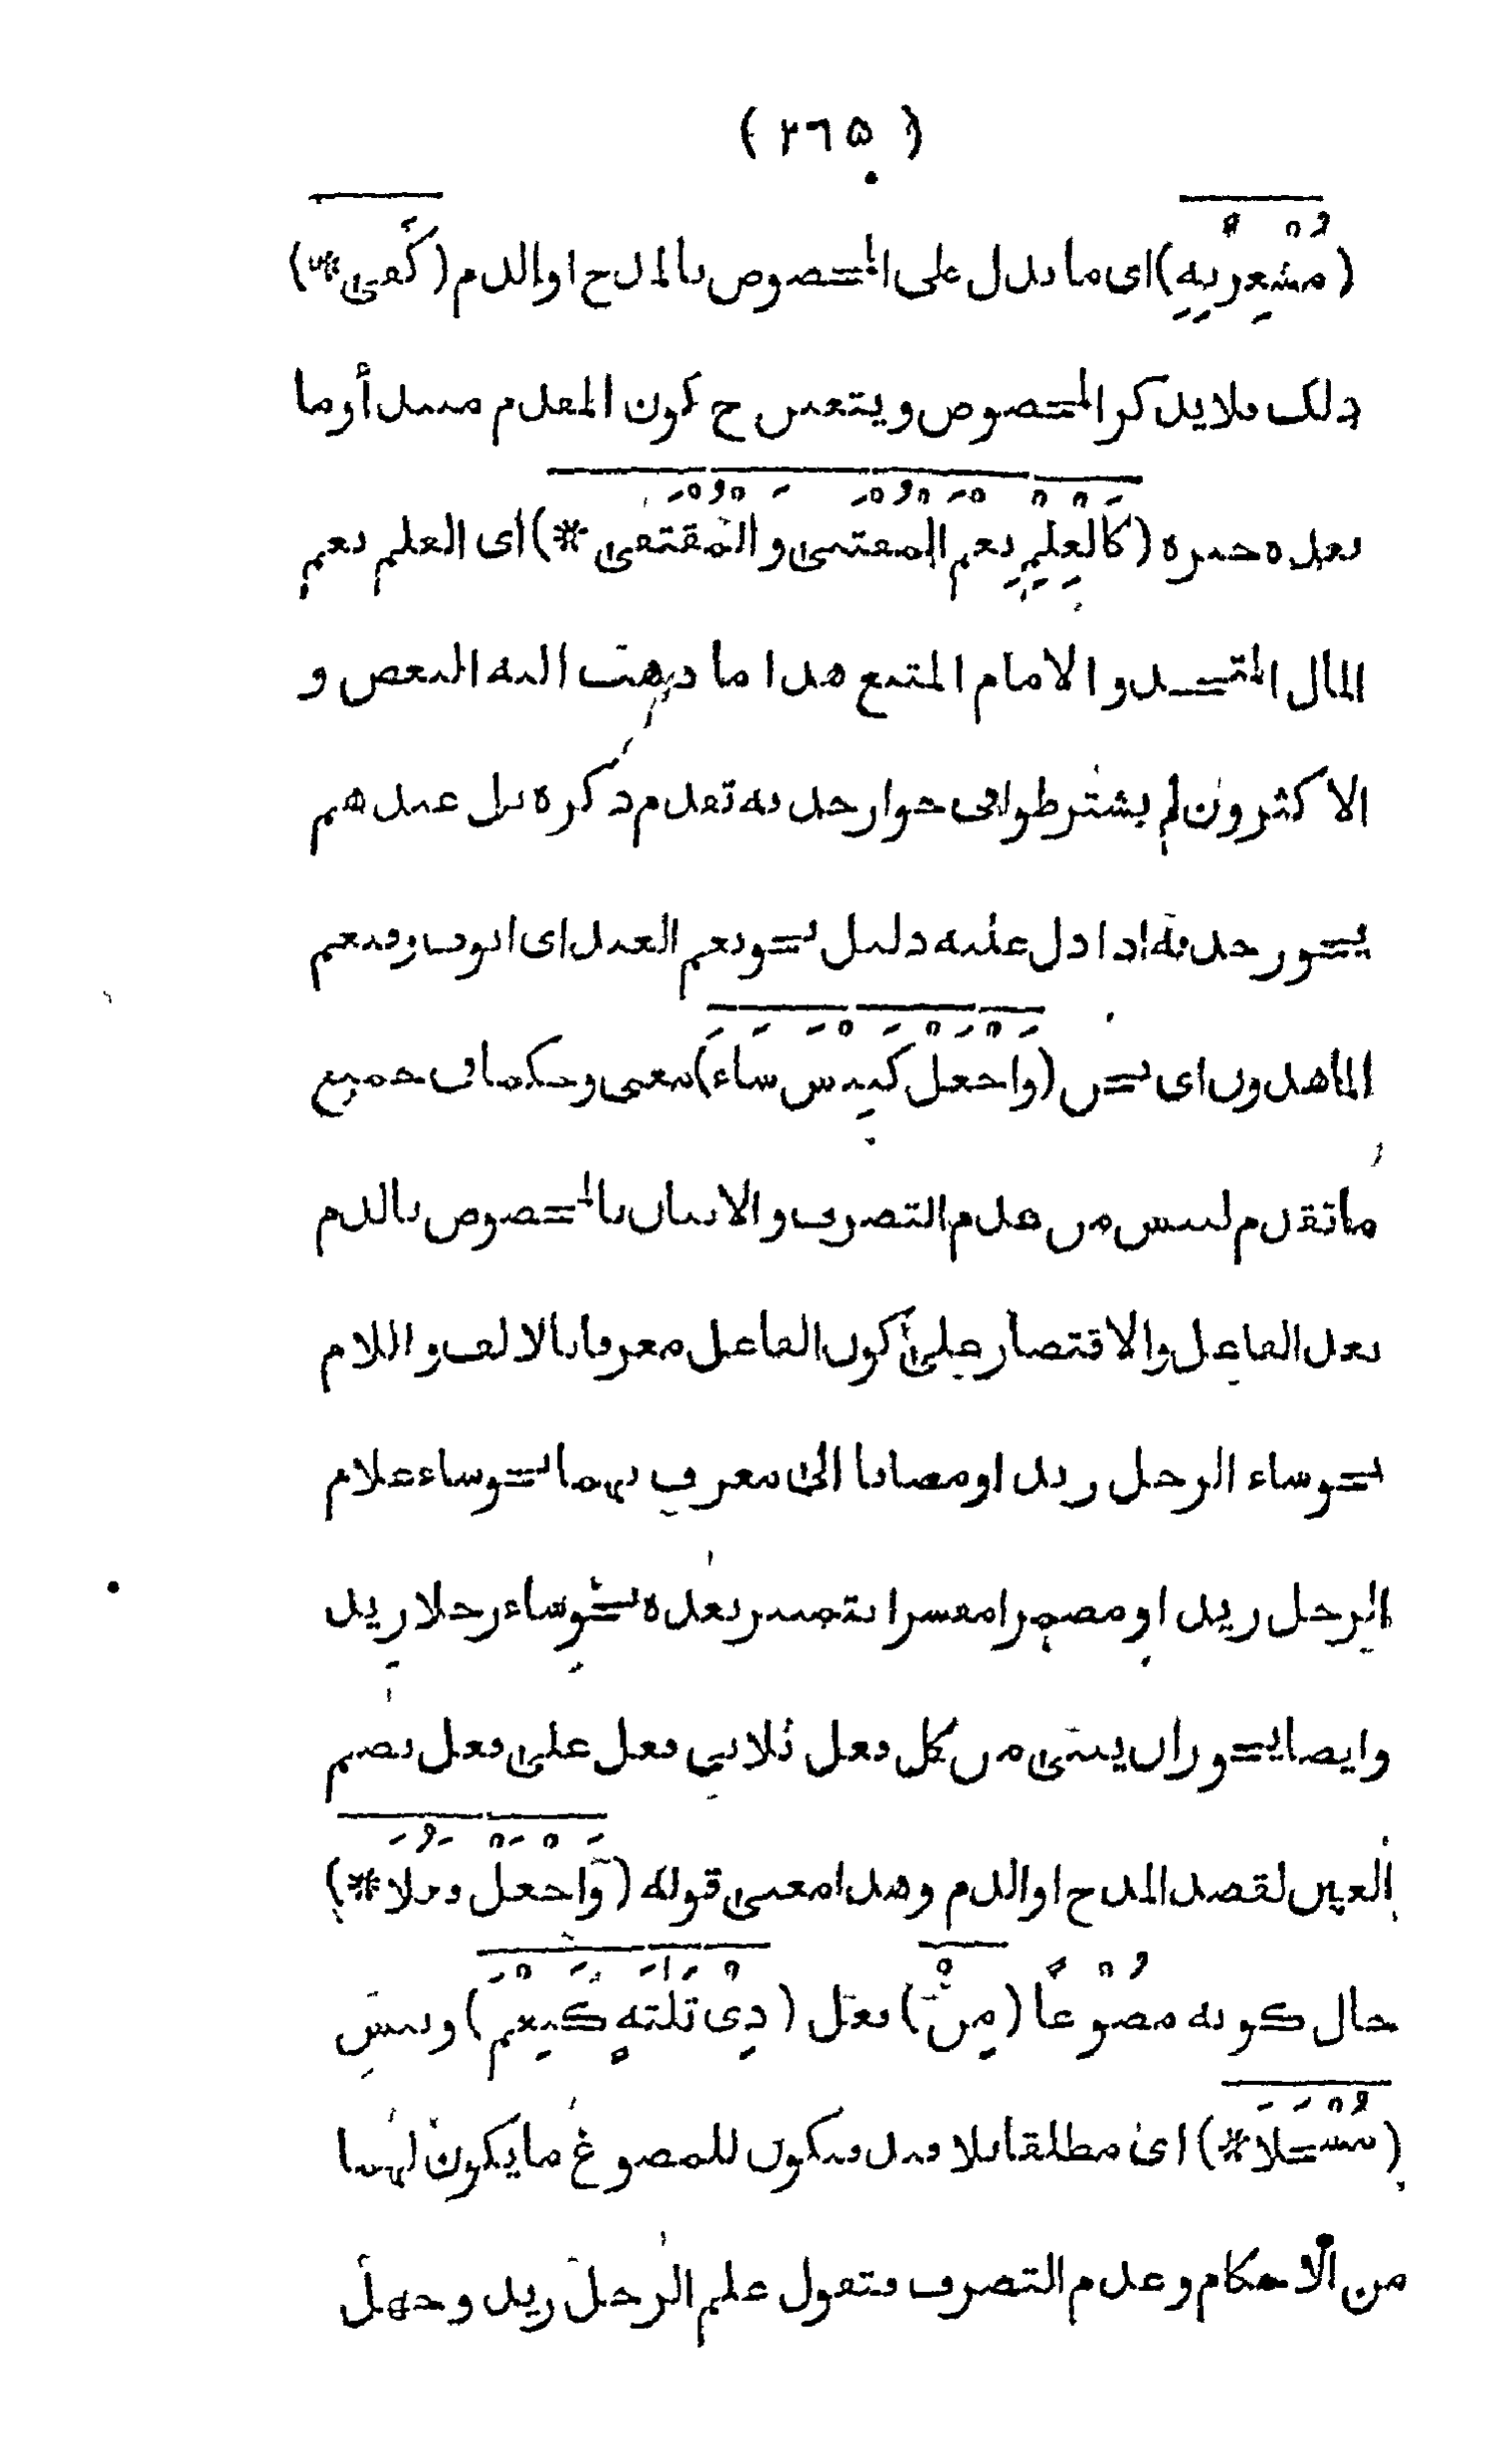 ( ٢٦٥ )
(مُشْعِرٌ بِهِ) اى ما يدل على المخصوص بالمدح او الذم (كَفَى *)
ذلك فلا يذكر المخصوص و يتعين ح كون المقدم مبتدأ و ما
بعده خبره (كَالْعِلْمِ نِعْمَ الْمُقْتَنَى وَ الْمُقْتَفَى *) اى العلم نعم
المال المتخذ و الامام المتبع هذا ما ذهبت اليه البعض و
الاكثرون لم يشترطوا فى جواز حذفه تقدم ذكره بل عندهم
يجوز حذفه اذا دل عليه دليل نحو نعم العبد اى ايوب و فنعم
الماهدون اى نحن (وَاجْعَلْ كَبِئْسَ سَاءَ) معنى و حكما فى جميع
ما تقدم لبئس من عدم التصرف و الاتيان بالمخصوص بالذم
بعد الفاعل و الاقتصار على كون الفاعل معرفا بالالف و اللام
نحو ساء الرجل زيد او مضافا الى معرف بهما نحو ساء غلام
الرجل زيد او مضمرا مفسرا بتمييز بعده نحو ساء رجلا زيد
و ايضا يجوز ان يبنى من كل فعل ثلاثي فعل على فعل بضم
العين لقصد المدح او الذم و هذا معنى قوله (وَاجْعَلْ فَعُلَا *)
حال كونه مصُوْغًا (مِنْ) فعل (ذِىْ ثَلٰثَةٍ كَنِعْمَ) و بئس
(مُسْجَلَا *) اى مطلقا بلا قيد فيكون للمصوغ ما يكون لهما
من الاحكام و عدم التصرف فتقول علم الرجل زيد و جهل